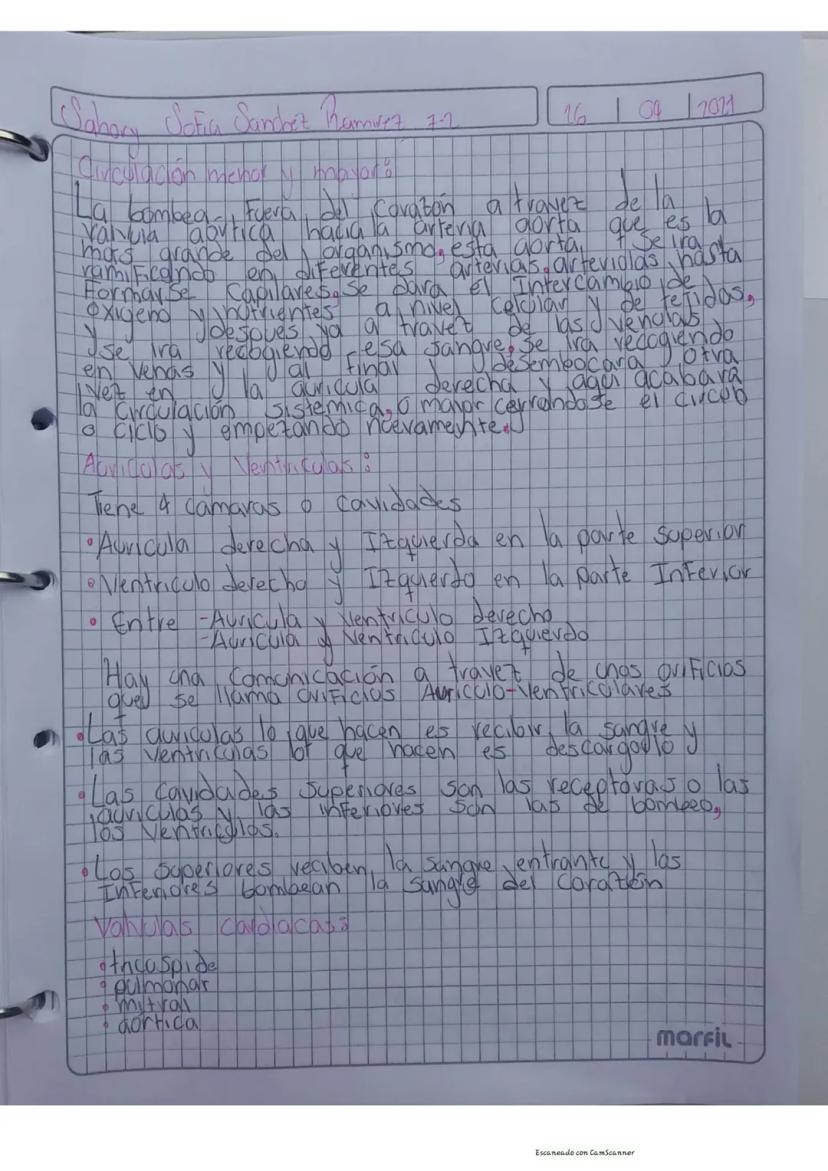 Sahory Sofia Sanchez Ramirez 7-2 16 | 04 | 2021
Circulación menor y mayor:
La bombea fuera del Corazón a travez de la
valvula aortica hacia la arteria aorta que es la
mas grande del organismo, esta aorta se ira
ramificando en diferentes arterias, arteriolas hasta
Formarse Capilares, se dara el Intercambio de
Oxigeno y nutrientes a nivel celular y de tejidos,
y despues ya a travez de las venolas
se ira recogiendo esa sangre, se ira recogiendo
en venas y al final desembocara otra
vez en la auricula derecha y aqui acabara
la Circulación Sistemica, o mayor cerrandose el
o ciclo y empezando nuevamente.
Auriculas y Ventriculas:
Tiene 4 camaras o cavidades
• Auricula derecha y Izquierda en la parte superior
• Ventriculo derecha y Izquierdo en la parte Inferior
• Entre -Auricula y Ventriculo derecho
-Auricula y Ventriculo Izquierdo
Hay una Comunicación a travez de unos orificios
que se llama orificios Auriculo-Ventriculares
• Las auriculas lo que hacen es recibir la sangre y
las ventriculas lo que hacen es descargarlo y
• Las Cavidades Superiores son las receptoras o las
auriculas y las inferiores son las de bombeo,
los Ventriculos.
• Los superiores reciben la sangre entrante y las
Inferiores bombean la sangre del Corazón
Valvulas Cardiacas:
• tricuspide
• pulmonar
• mitral
• aortica
marfil
Escaneado con CamScanner